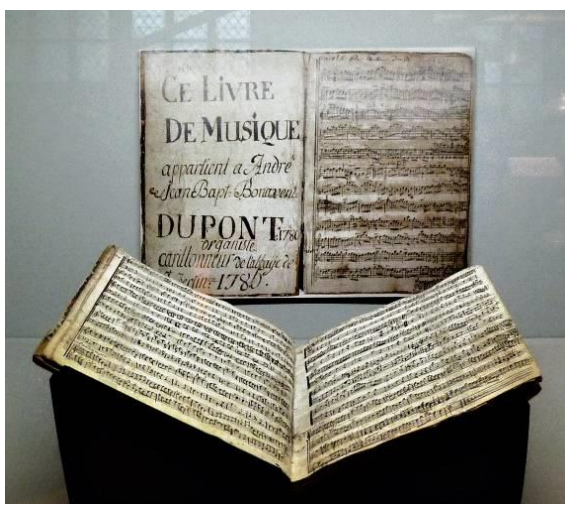 CE LIVRE
DE MUSIQUE
appartient a André
Jean Bapt. Bonavent.
DUPONT 1780
organiste
carillonneur de l'abbaye de
1780.